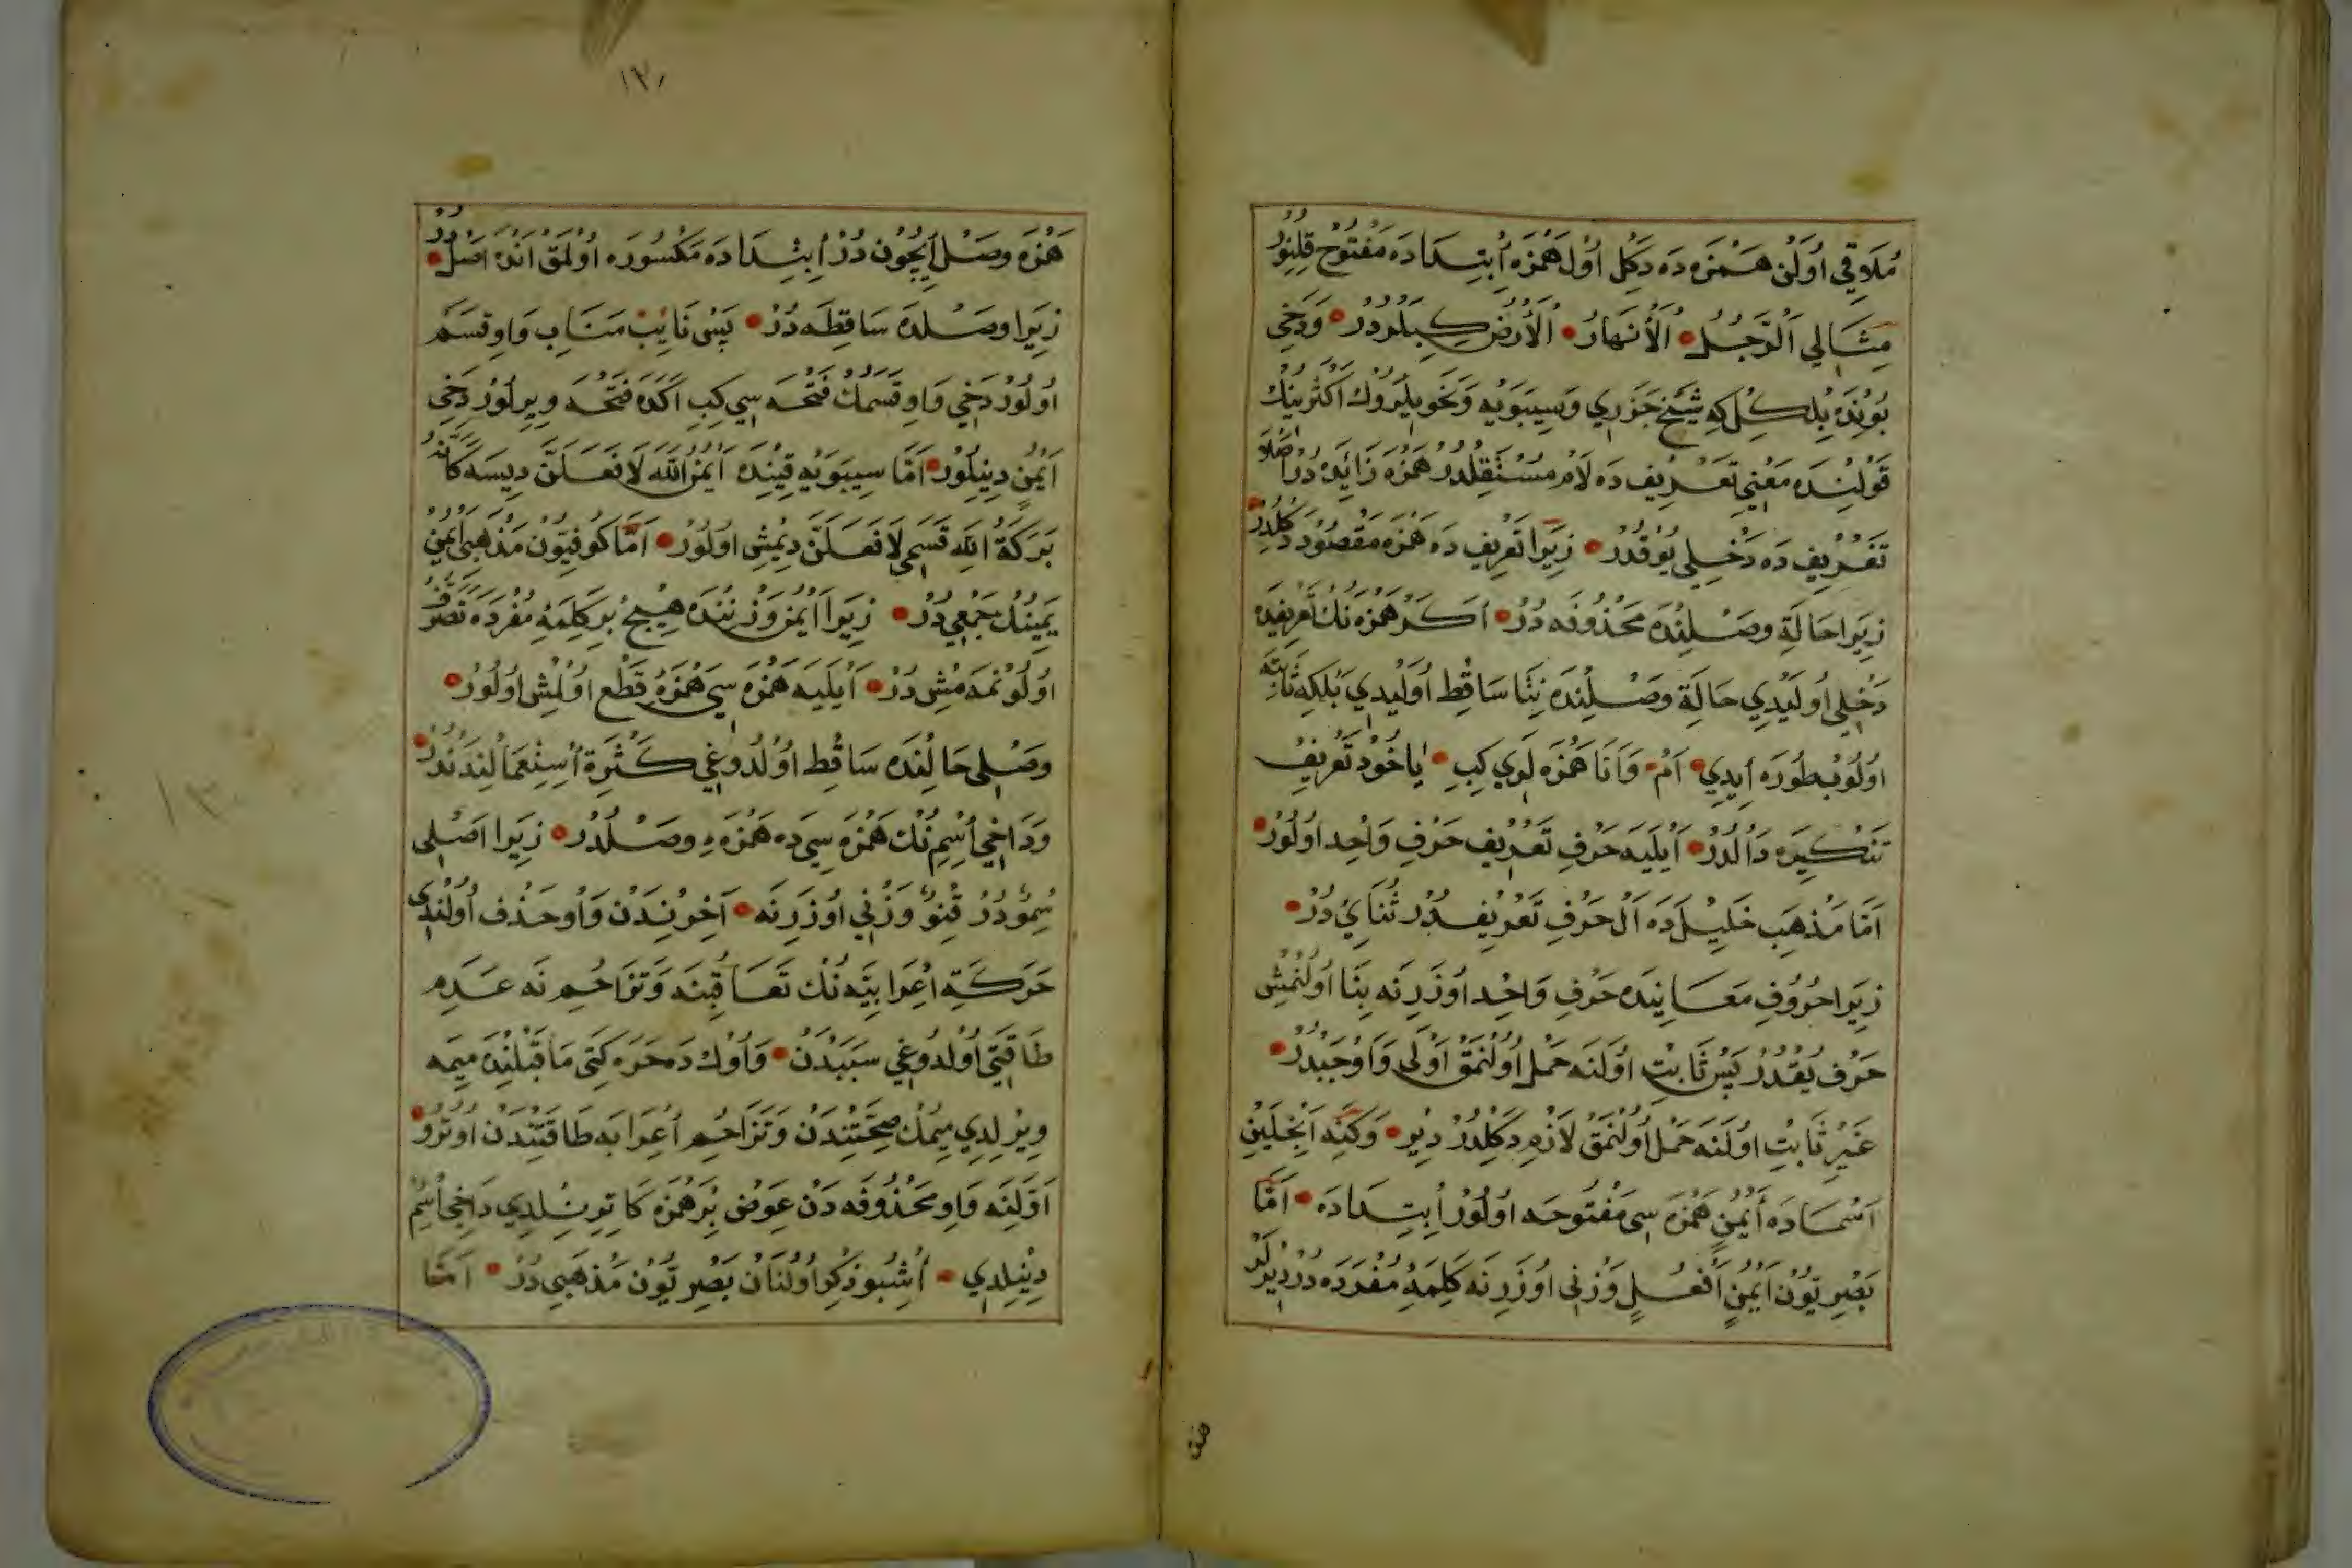 مُلَاقِي اُولَنْ هَمْزَه دَه دَكِل اُوْل هَمْزَه اِبْتِدَادَه مَفْتُوحْ قِلِنُورْ
مِثَالِي اَلرَّجُلُ اَلْأَنْهَارُ اَلْأَرْضُ كِبِيلَرْدُرْ وَدَخِي
بُونْدَه بِلْكِلْ كِه شَيْخ جَزَرِي وَسِيبَوَيْه وَنَحْوِيلَرُوكْ اَكْثَرِينِكْ
قَوْلِنْدَه مَعْنِي تَعْرِيف دَه لَامْ مُسْتَقِلْدُرْ هَمْزَه زَائِدَه دُرْ اَصْلَا
تَعْرِيف دَه دَخْلِي يُوقْدُرْ زِيرَا تَعْرِيف دَه هَمْزَه مَقْصُودْ دَكِلْدُرْ
زِيرَا حَالَةِ وَصْلِنْدَه مَحْذُوفَه دُرْ اَكَرْ هَمْزَه نِكْ تَعْرِيفِدَه
دَخْلِي اُولَيْدِي حَالَةِ وَصْلِنْدَه نِتَا سَاقِطْ اُولِيدِي بَلْكِه ثَابِتَه
اُولُوبْ طُورَه اِيدِي اَمْ وَاَنَا هَمْزَه لَرِي كِبِ يَا خُودْ تَعْرِيفْ
تَنْكِيرَه دَالْدُرْ اَيْلَيَه حَرْفِ تَعْرِيف حَرْفِ وَاحِد اُولُورْ
اَمَّا مَذْهَبِ خَلِيلْدَه اَلْ حَرْفِ تَعْرِيفْدُرْ ثُنَايِيْ دُرْ
زِيرَا حُرُوفِ مَعَانِيدَه حَرْفِ وَاحِد اُوزَرِنَه بِنَا اُولُنْمِشْ
حَرْف يُقْدُرْ پَسْ ثَابِتْ اُولَنَه حَمْل اُولُنْمَقْ اَوْلَى وَاَوْجَبْدُرْ
غَيْرِ ثَابِتْ اُولَنَه حَمْل اُولُنْمَقْ لَازِمْ دَكِلْدُرْ دِيرْ وَكَنَه
اَسْمَادَه اَيْمُنِ هَمْزَه سِي مَفْتُوحَه اُولُورْ اِبْتِدَادَه اَمَّا
بَصْرِيُّون اَيْمُنٍ اَفْعُلٍ وَزْنِي اُوزَرِنَه كَلِمَهِ مُفْرَدَه دُرْ دِيرْلَرْ
١٣٠
هَمْزَه وَصْل اِيچُون دُرْ اِبْتِدَادَه مَكْسُورَه اُولْمَقْ اَنْدَه اَصْلْدُرْ
زِيرَا وَصْلدَه سَاقِطَه دُرْ پَسْ نَايِبْ مَنَابِ وَاوِ قَسَمْ
اُولُورْ دَخِي وَاوِ قَسَمُكْ فَتْحَه سِي كِبِ اَكَدَه فَتْحَه وِيرِلُورْ دَخِي
اَيْمُنٍ دِينِلُورْ اَمَّا سِيبَوَيْه قِتِنْدَه اَيْمُنُ اللّٰه لَافَعَلَنَّ دِيسَه كَاَنَّهُ
بَرَكَةُ اللّٰهِ قَسَمِي لَافَعَلَنَّ دِيمِشْ اُولُورْ اَمَّا كُوفِيُّونْ مَذْهَبِي اَيْمُنْ
يَمِينُكْ جَمْعِي دُرْ زِيرَا اَيْمُنْ وَزْنِنْدَه هِيچْ بِرْ كَلِمَهِ مُفْرَدَه تَصَرُّفْ
اُولُونْمَه مِشْ دُرْ اَيْلَيَه هَمْزَه سِي هَمْزَهِ قَطْع اُولْمِشْ اُولُورْ
وَصْلِي حَالِنْدَه سَاقِطْ اُولْدُوغِي كَثْرَةِ اِسْتِعْمَالِنْدَنْدُرْ
وَدَاخِي اِسْمِنُكْ هَمْزَه سِيدَه هَمْزَهِ وَصْلْدُرْ زِيرَا اَصْلِي
سِمْوٌدُرْ قِنْوٌ وَزْنِي اُوزَرِنَه آخِرِنْدَنْ وَاوُ حَذْف اُولُنْدِي
حَرَكَةِ اِعْرَابِيَّه نُكْ تَعَاقُبِنَه وَتَزَاحُمِ نَه عَدَمِ
طَاقَتِي اُولْدُوغِي سَبَبْدَنْ وَاوُكْ دَه حَرَه كَتِي مَا قَبْلِنْدَه مِيمَه
وِيرِلِدِي مِيمُكْ صِحَّتِنْدَنْ وَتَزَاحُمِ اِعْرَابَه طَاقَتِنْدَنْ اُوتُرُو
اَوَّلِنَه وَاوِ مَحْذُوفَه دَنْ عِوَضْ بِرْ هَمْزَه كَاتِورِلْدِي دَاخِي اِسْمْ
دِينِلِدِي اُشْبُو ذِكْر اُولُنَانْ بَصْرِيُّونْ مَذْهَبِي دُرْ اَمَّا